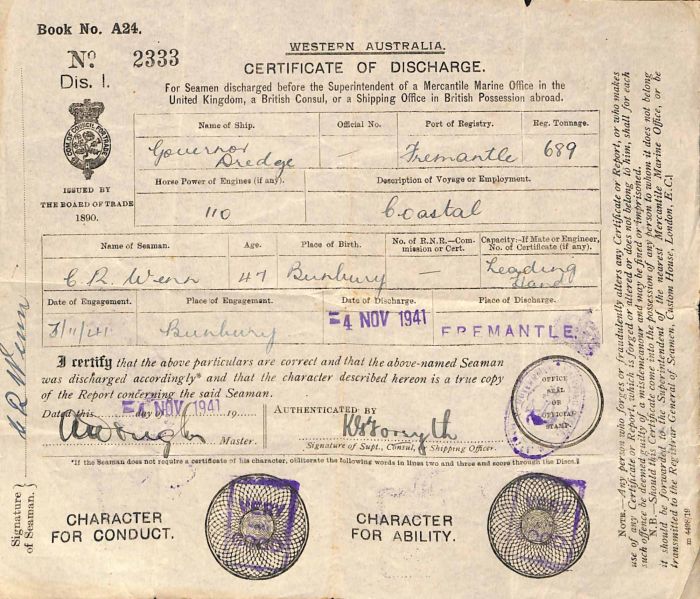 Book No. A24.
No 2333
Dis. 1.
WESTERN AUSTRALIA.
CERTIFICATE OF DISCHARGE.
For Seamen discharged before the Superintendent of a Mercantile Marine Office in the
United Kingdom, a British Consul, or a Shipping Office in British Possession abroad.
ISSUED BY
THE BOARD OF TRADE
1890.
Name of Ship. Official No. Port of Registry. Reg. Tonnage.
Governor
Dredge — Fremantle 689
Horse Power of Engines (if any). Description of Voyage or Employment.
110 Coastal
Name of Seaman. Age. Place of Birth. No. of R.N.R.—Com-
mission or Cert. Capacity:-If Mate or Engineer,
No. of Certificate (if any).
C. R. Wenn 47 Bunbury — Leading
Hand
Date of Engagement. Place of Engagement. Date of Discharge. Place of Discharge.
3/11/41 Bunbury -4 NOV 1941 FREMANTLE
I certify that the above particulars are correct and that the above-named Seaman
was discharged accordingly* and that the character described hereon is a true copy
of the Report concerning the said Seaman.
Dated this day of 19
-4 NOV 1941
Master.
AUTHENTICATED BY
Forsyth
Signature of Supt., Consul, or Shipping Officer.
OFFICE
SEAL
OR
OFFICIAL
STAMP.
*If the Seaman does not require a certificate of his character, obliterate the following words in lines two and three and score through the Discs.
CHARACTER
FOR CONDUCT.
VERY
GOOD
CHARACTER
FOR ABILITY.
VERY
Signature
of Seaman.
C R Wenn
NOTE.—Any person who forges or fraudulently alters any Certificate or Report, or who makes
use of any Certificate or Report, which is forged or altered or does not belong to him, shall for each
such offence be deemed guilty of a misdemeanour and may be fined or imprisoned.
N.B.—Should this Certificate come into the possession of any person to whom it does not belong
it should be forwarded to the Superintendent of the nearest Mercantile Marine Office, or be
transmitted to the Registrar General of Seamen, Custom House, London, E.C.